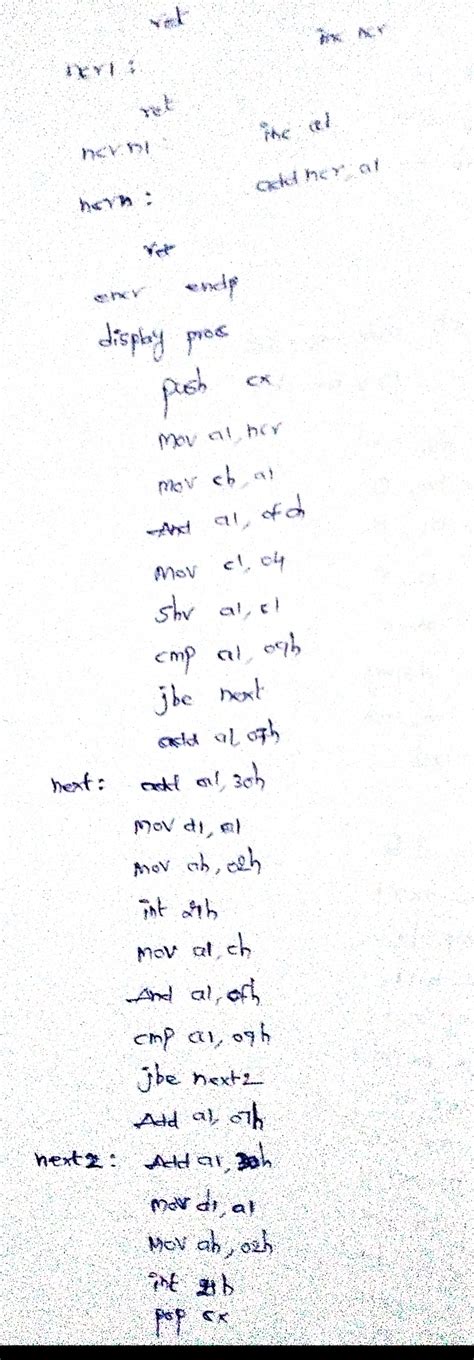 ret
inc ncr
ncr1:
ret
ncrn1: inc al
ncrn: add ncr, al
ret
encr endp
display proc
push cx
mov al, ncr
mov ch, al
And al, of0h
mov cl, 04
shr al, cl
cmp al, 09h
jbe next
add al, 07h
next: add al, 30h
mov dl, al
mov ah, 02h
int 21h
mov al, ch
And al, 0fh
cmp al, 09h
jbe next2
Add al, 07h
next2: Add al, 30h
mov dl, al
Mov ah, 02h
int 21h
pop cx